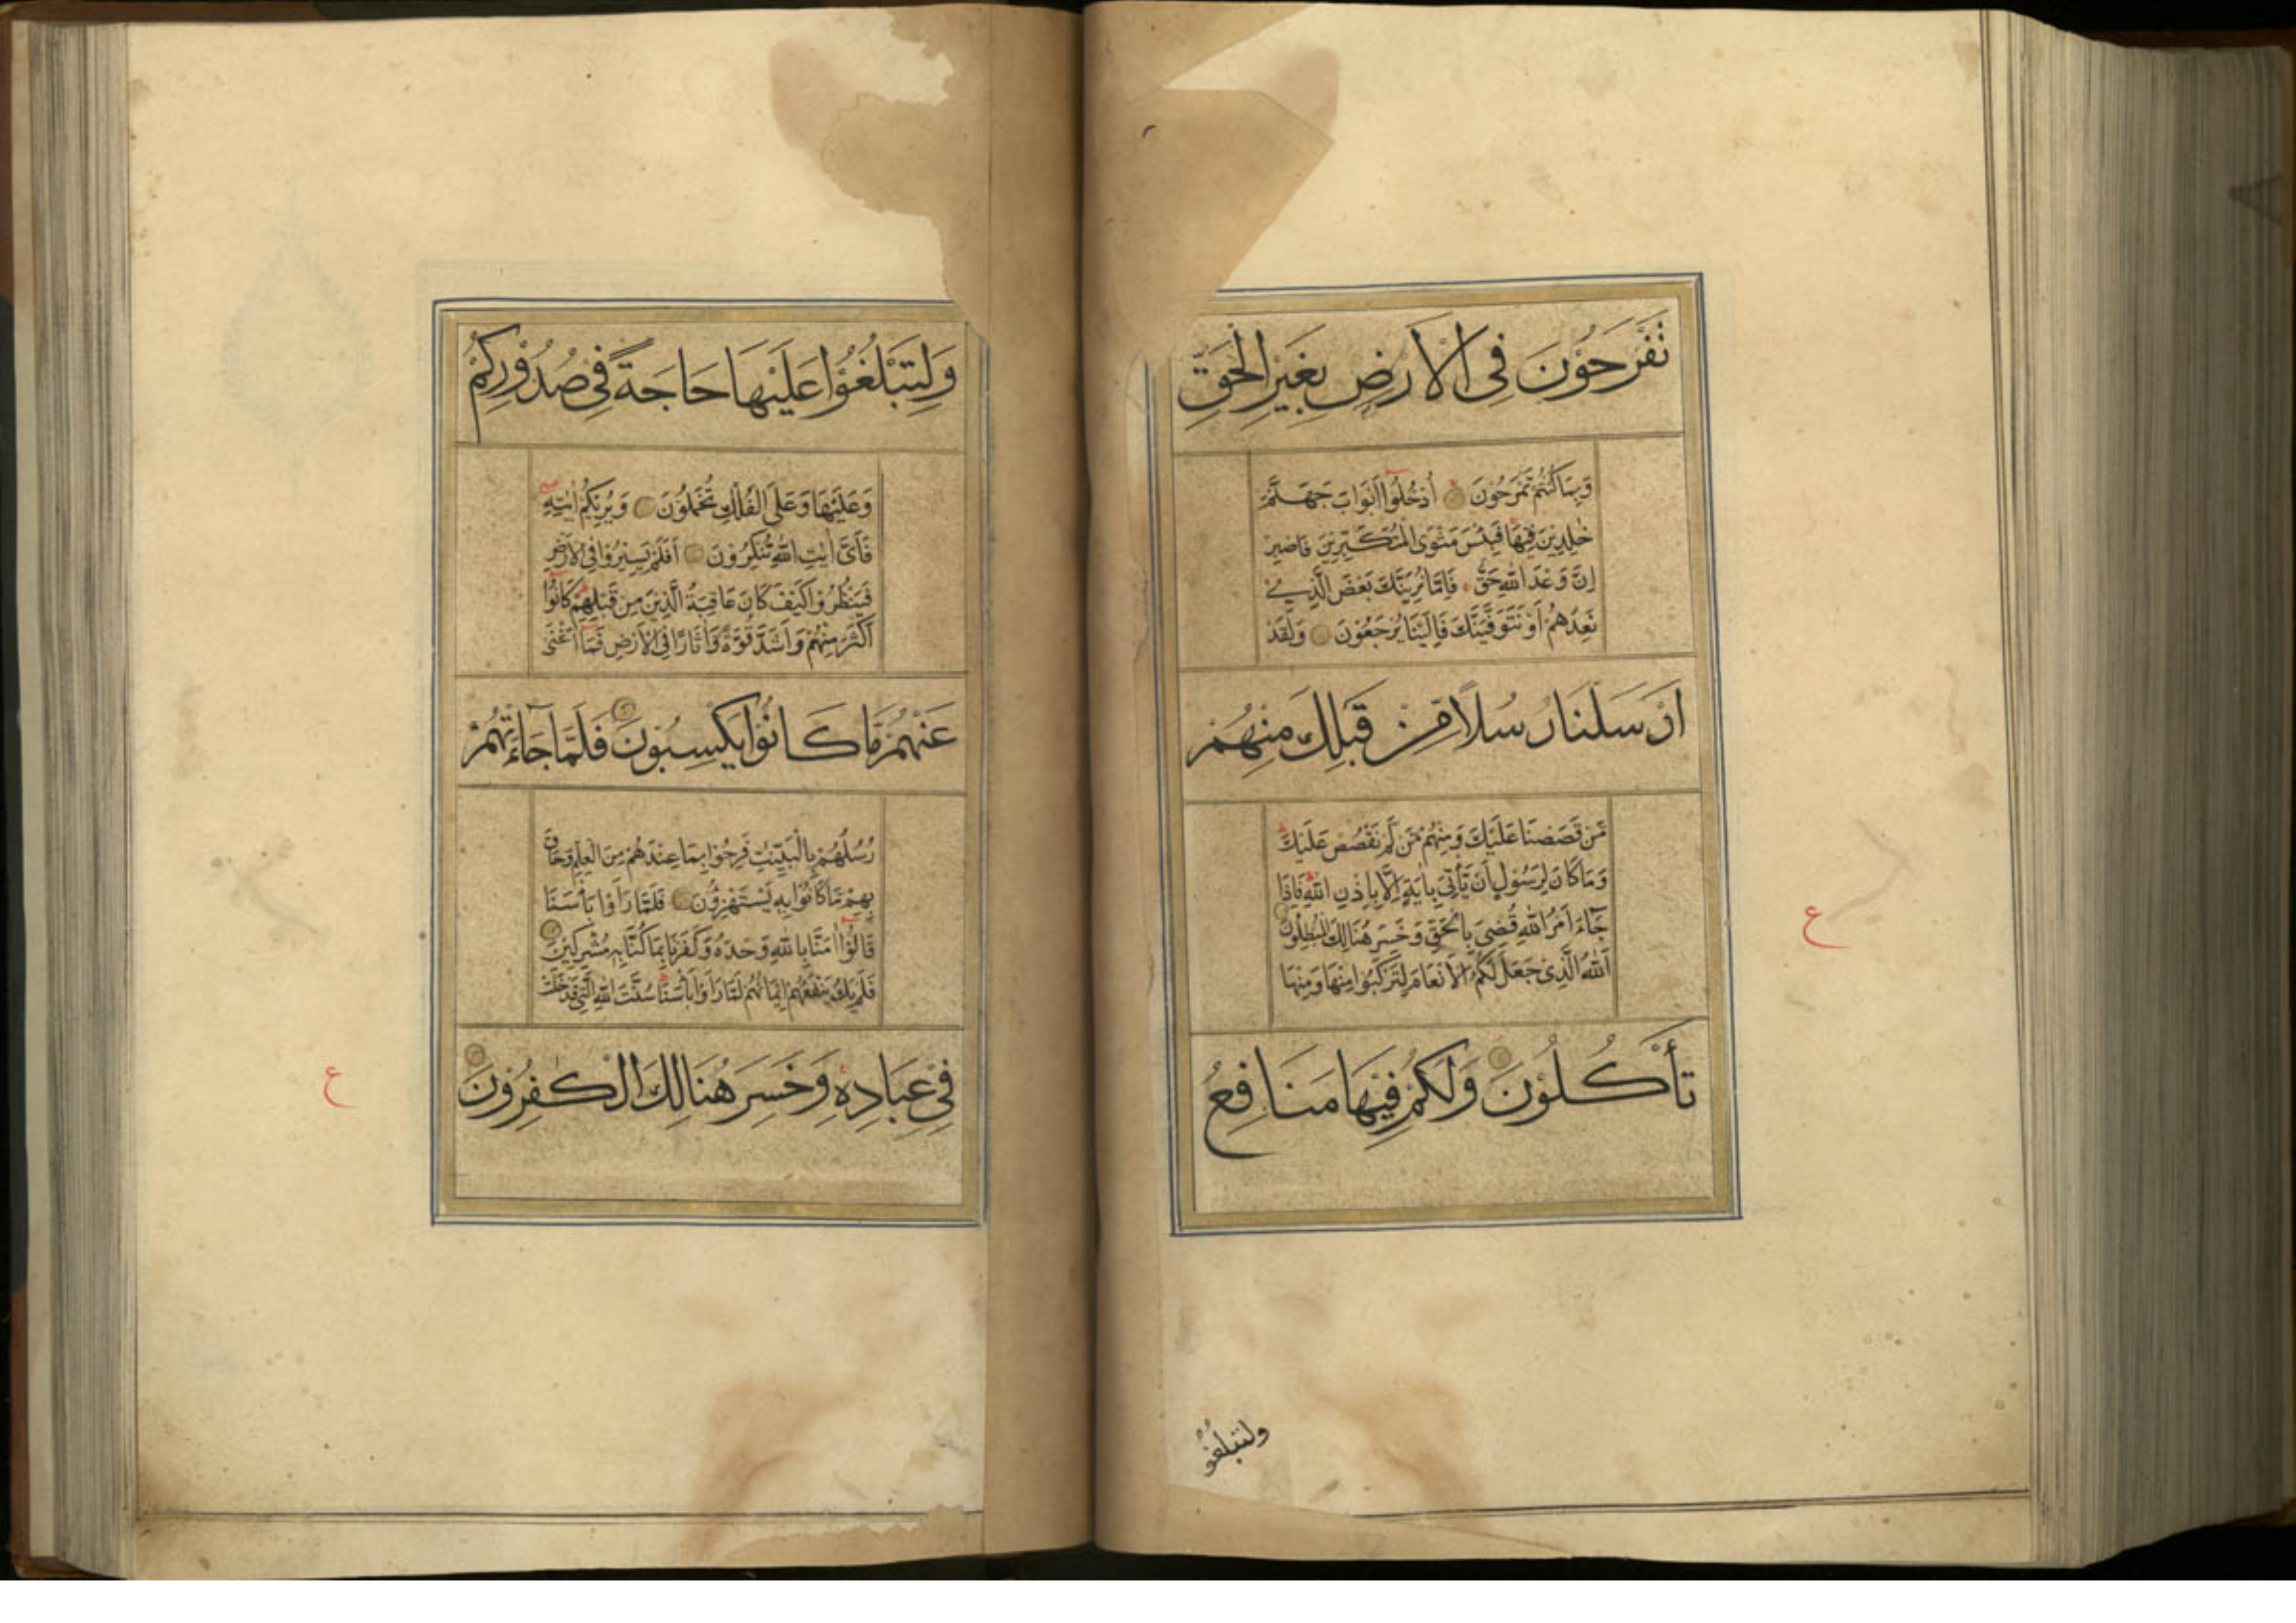 تَفْرَحُوْنَ فِى الْاَرْضِ بِغَيْرِ الْحَقِّ
وَبِمَا كُنْتُمْ تَمْرَحُوْنَ اُدْخُلُوْا اَبْوَابَ جَهَنَّمَ
خٰلِدِيْنَ فِيْهَا فَبِئْسَ مَثْوَى الْمُتَكَبِّرِيْنَ فَاصْبِرْ
اِنَّ وَعْدَ اللّٰهِ حَقٌّ فَاِمَّا نُرِيَنَّكَ بَعْضَ الَّذِيْ
نَعِدُهُمْ اَوْ نَتَوَفَّيَنَّكَ فَاِلَيْنَا يُرْجَعُوْنَ وَلَقَدْ
اَرْسَلْنَا رُسُلًا مِّنْ قَبْلِكَ مِنْهُمْ
مَّنْ قَصَصْنَا عَلَيْكَ وَمِنْهُمْ مَّنْ لَّمْ نَقْصُصْ عَلَيْكَ
وَمَا كَانَ لِرَسُوْلٍ اَنْ يَّأْتِيَ بِاٰيَةٍ اِلَّا بِاِذْنِ اللّٰهِ فَاِذَا
جَآءَ اَمْرُ اللّٰهِ قُضِيَ بِالْحَقِّ وَخَسِرَ هُنَالِكَ الْمُبْطِلُوْنَ
اَللّٰهُ الَّذِيْ جَعَلَ لَكُمُ الْاَنْعَامَ لِتَرْكَبُوْا مِنْهَا وَمِنْهَا
تَأْكُلُوْنَ وَلَكُمْ فِيْهَا مَنَافِعُ
ع
ولتبلُغُوْا
وَلِتَبْلُغُوْا عَلَيْهَا حَاجَةً فِيْ صُدُوْرِكُمْ
وَعَلَيْهَا وَعَلَى الْفُلْكِ تُحْمَلُوْنَ وَيُرِيْكُمْ اٰيٰتِهٖ
فَاَيَّ اٰيٰتِ اللّٰهِ تُنْكِرُوْنَ اَفَلَمْ يَسِيْرُوْا فِى الْاَرْضِ
فَيَنْظُرُوْا كَيْفَ كَانَ عَاقِبَةُ الَّذِيْنَ مِنْ قَبْلِهِمْ كَانُوْا
اَكْثَرَ مِنْهُمْ وَاَشَدَّ قُوَّةً وَّاٰثَارًا فِى الْاَرْضِ فَمَا اَغْنٰى
عَنْهُمْ مَّا كَانُوْا يَكْسِبُوْنَ فَلَمَّا جَآءَتْهُمْ
رُسُلُهُمْ بِالْبَيِّنٰتِ فَرِحُوْا بِمَا عِنْدَهُمْ مِنَ الْعِلْمِ وَحَاقَ
بِهِمْ مَّا كَانُوْا بِهٖ يَسْتَهْزِؤُنَ فَلَمَّا رَاَوْا بَأْسَنَا
قَالُوْا اٰمَنَّا بِاللّٰهِ وَحْدَهٗ وَكَفَرْنَا بِمَا كُنَّا بِهٖ مُشْرِكِيْنَ
فَلَمْ يَكُ يَنْفَعُهُمْ اِيْمَانُهُمْ لَمَّا رَاَوْا بَأْسَنَا سُنَّتَ اللّٰهِ الَّتِيْ قَدْ خَلَتْ
فِيْ عِبَادِهٖ وَخَسِرَ هُنَالِكَ الْكٰفِرُوْنَ
ع